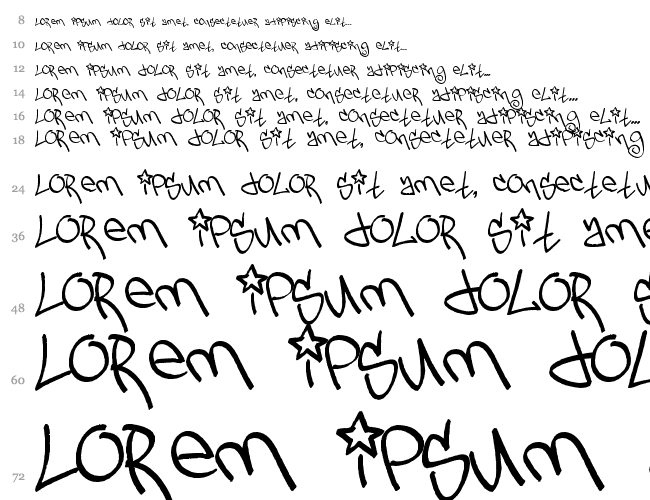 8 Lorem ipsum dolor sit amet, consectetuer adipiscing elit...
10 Lorem ipsum dolor sit amet, consectetuer adipiscing elit...
12 Lorem ipsum dolor sit amet, consectetuer adipiscing elit...
14 Lorem ipsum dolor sit amet, consectetuer adipiscing elit...
16 Lorem ipsum dolor sit amet, consectetuer adipiscing elit...
18 Lorem ipsum dolor sit amet, consectetuer adipiscing
24 Lorem ipsum dolor sit amet, consectetu
36 Lorem ipsum dolor sit ame
48 Lorem ipsum dolor s
60 Lorem ipsum dol
72 Lorem ipsum